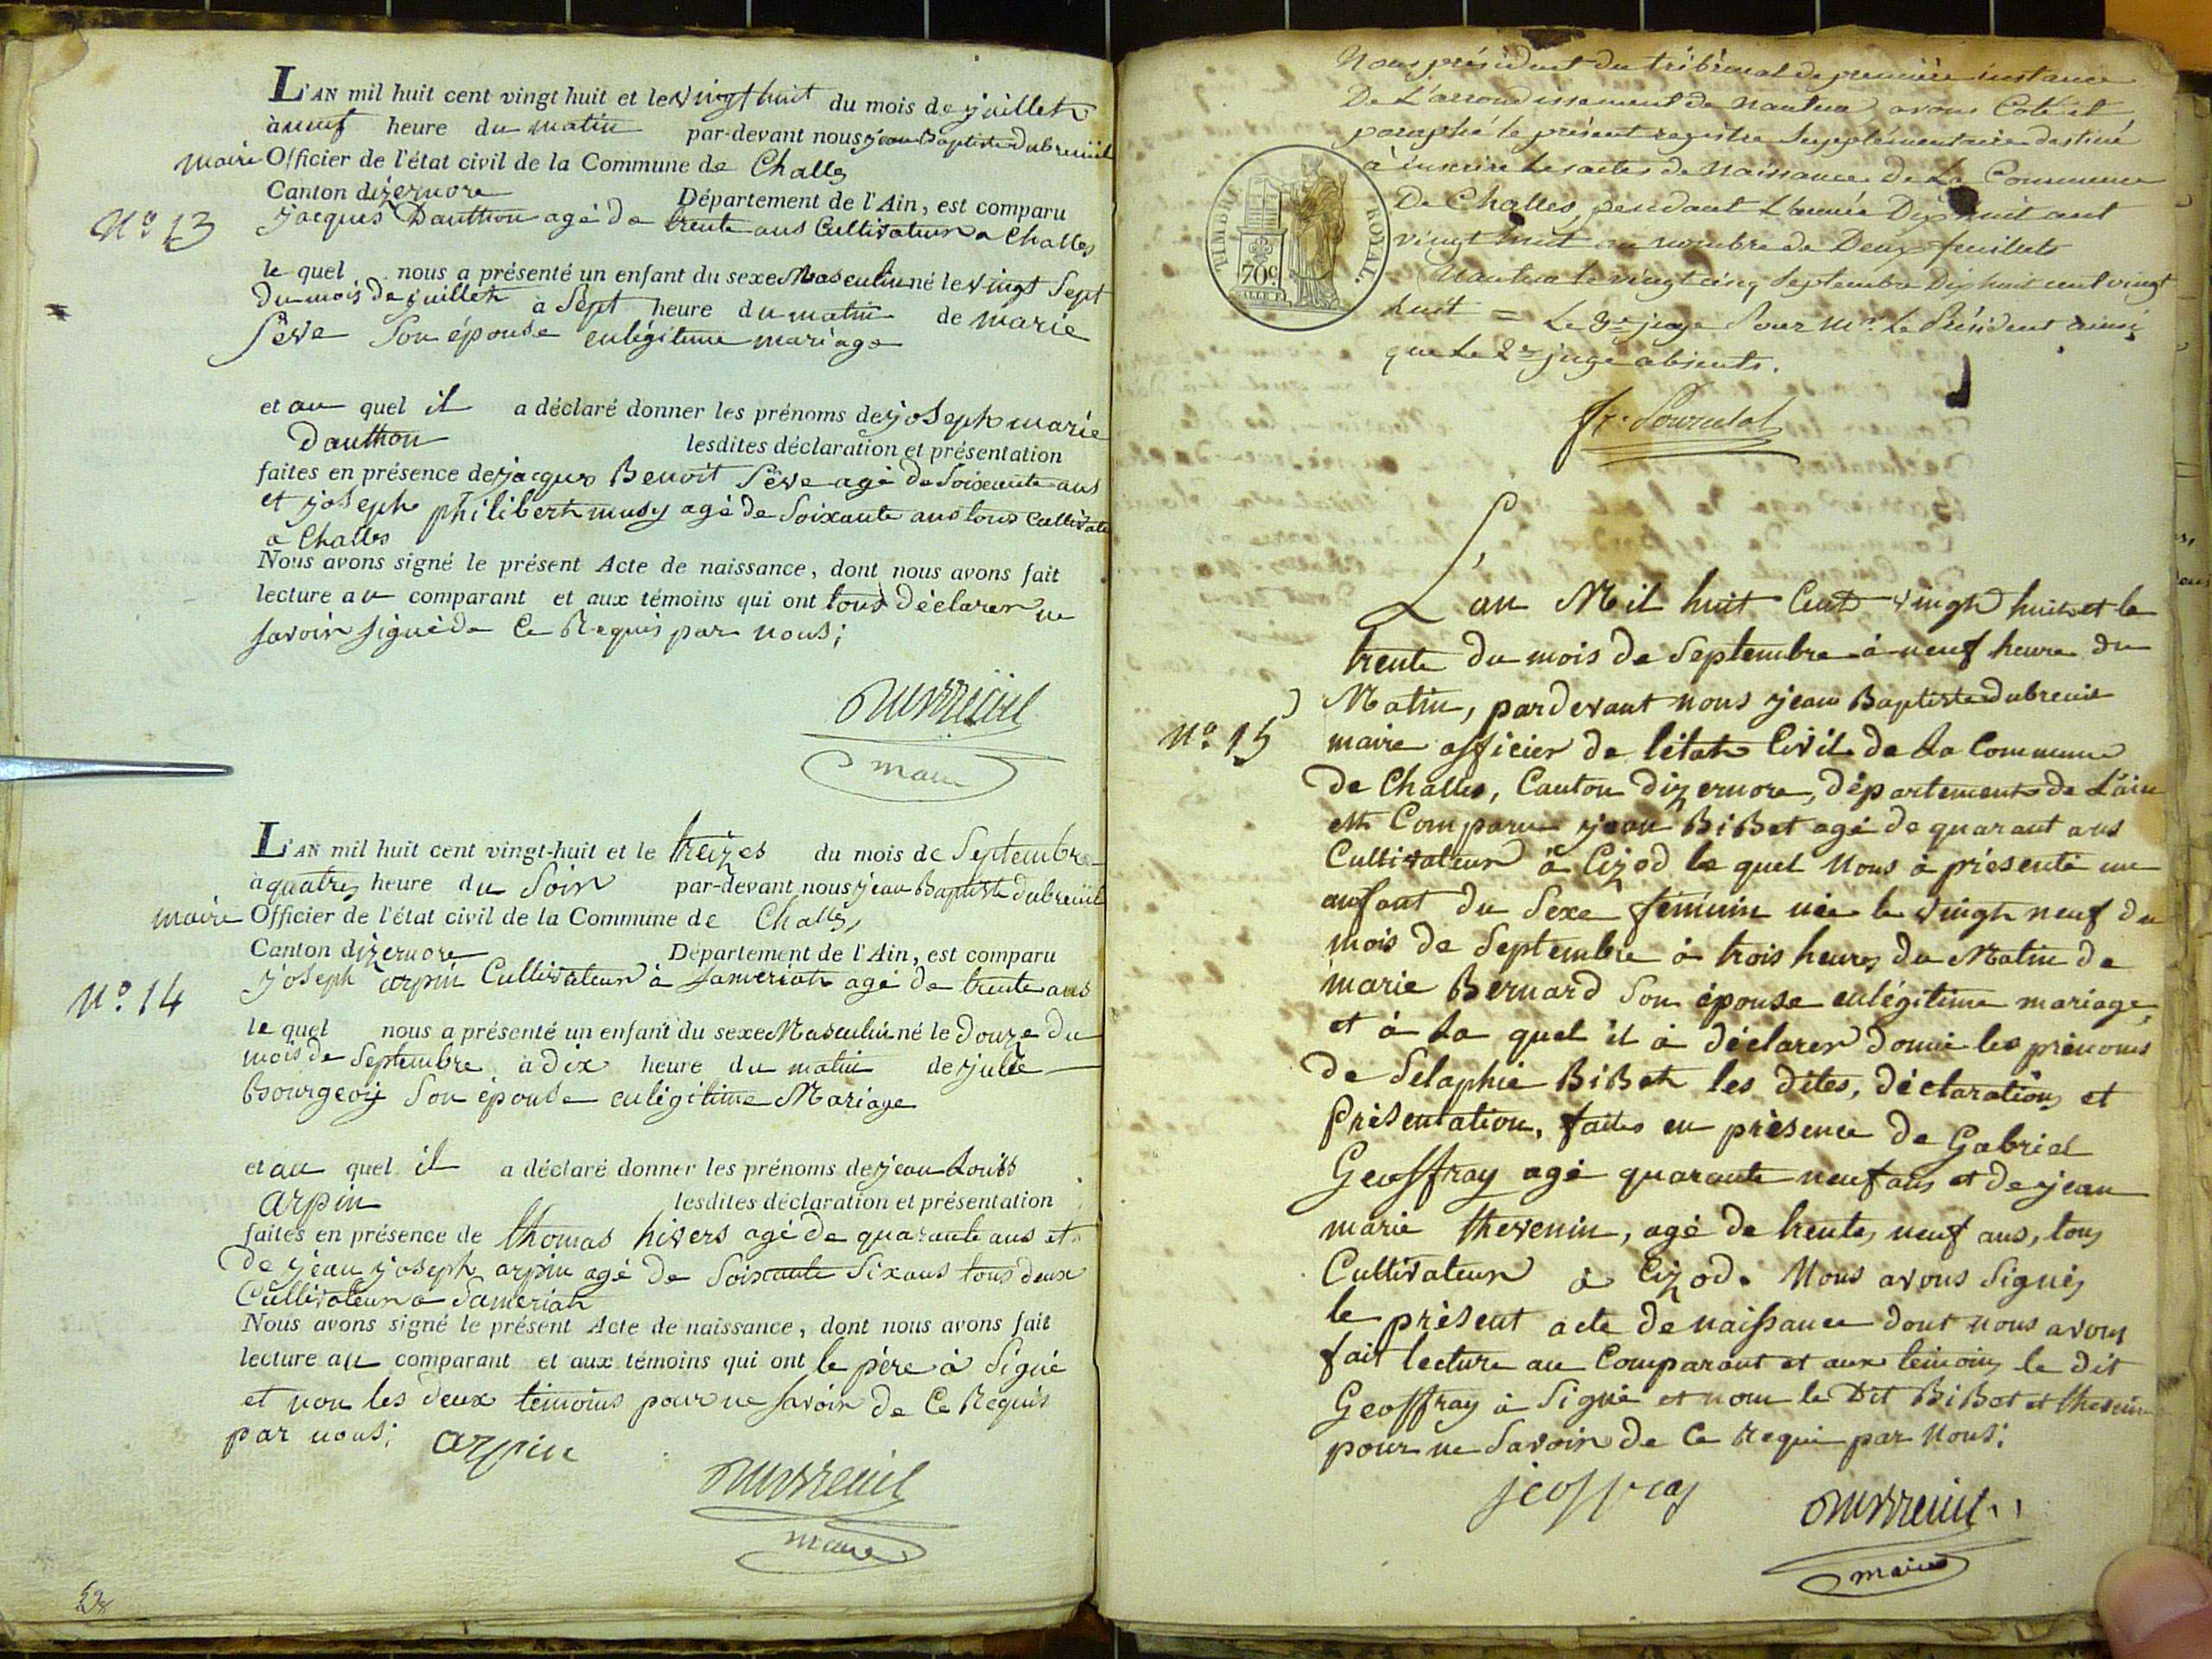 L'AN mil huit cent vingt huit et le vingt huit du mois de juillet
à neuf heure du matin par-devant nous jean Baptiste dubreuil
maire Officier de l'état civil de la Commune de Challes
Canton dizernore Département de l'Ain, est comparu
N.° 13 jacques Dauthon agé de trente ans Cultivateur a Challes
le quel nous a présenté un enfant du sexe Masculin né le vingt Sept
du mois de juillet à Sept heure du matin de marie
Sève Son épouse enlégitime mariage
et au quel il a déclaré donner les prénoms de joseph marie
Dauthon lesdites déclaration et présentation
faites en présence de jacques Benoit Sève agé de Soixante ans
et joseph philibert musy agé de Soixante ans tous Cultivate
a Challes
Nous avons signé le présent Acte de naissance, dont nous avons fait
lecture au comparant et aux témoins qui ont tous déclarer ne
savoir signé de Ce Requis par nous;
Dubreuil
maire
L'AN mil huit cent vingt-huit et le treizes du mois de Septembre
à quatres heure du Soir par-devant nous jean Baptiste dubreuil
maire Officier de l'état civil de la Commune de Challes
Canton dizernore Département de l'Ain, est comparu
N.° 14 joseph arpin Cultivateur à Sameriat agé de trente ans
le quel nous a présenté un enfant du sexe Masculin né le Douze du
mois de Septembre à dix heure du matin de julie
Bourgeois Son épouse enlégitime Mariage
et au quel il a déclaré donner les prénoms de jean Louiss
arpin lesdites déclaration et présentation
faites en présence de thomas hivers agé de quarante ans et
de jean joseph arpin agé de Soixante Six ans tous deux
Cultivateur a Sameriat
Nous avons signé le présent Acte de naissance, dont nous avons fait
lecture au comparant et aux témoins qui ont le père à Signé
et non les deux témoins pour ne savoir de Ce Requis
par nous; arpin
Dubreuil
maire
Nous président du tribunal de première instance
De L'arrondissement de Nantua avons Coté et
paraphé le présent registre Supplémentaire destiné
à inscrire Les actes de Naissance de La Commune
De Challes, pendant L'année Dix huit cent
vingt huit au nombre de Deux feuillets
Nantua le vingt cinq Septembre Dix huit cent vingt
huit = Le 3e juge Pour Mr. Le Président ainsi
que Le 2e juge absents.
TIMBRE ROYAL.
70c.
L'an Mil huit Cent vingt huit et le
trente du mois de Septembre à neuf heure du
Matin, pardevant nous jean Baptiste dubreuil
N.° 15 maire officier de létat Civil de La Commune
de Challes, Canton dizernore, département de Lain
est Comparu jean BiBet agé de quarant ans
Cultivateur à Cizod le quel Nous à présenté un
anfant du Sexe féminin née le vingt neuf du
mois de Septembre à trois heures du Matin de
marie Bernard Son épouse enlégitime mariage,
et à La quel il à déclarer donné les prénoms
de Sélaphie BiBet les dites, déclarations et
Présentation, faites en présence de Gabriel
Geoffray agé quarante neuf ans et de jean
marie thevenin, agé de trente, neuf ans, tous
Cultivateur à Cizod. Nous avons Signés
le présent acte de naissance dont nous avons
fait lecture au Comparant et aux témoins le dit
Geoffray à Signé et nom le Dit BiBet et thevenin
pour ne Savoir de Ce Requi par Nous;
jeoffray
Dubreuil
maire